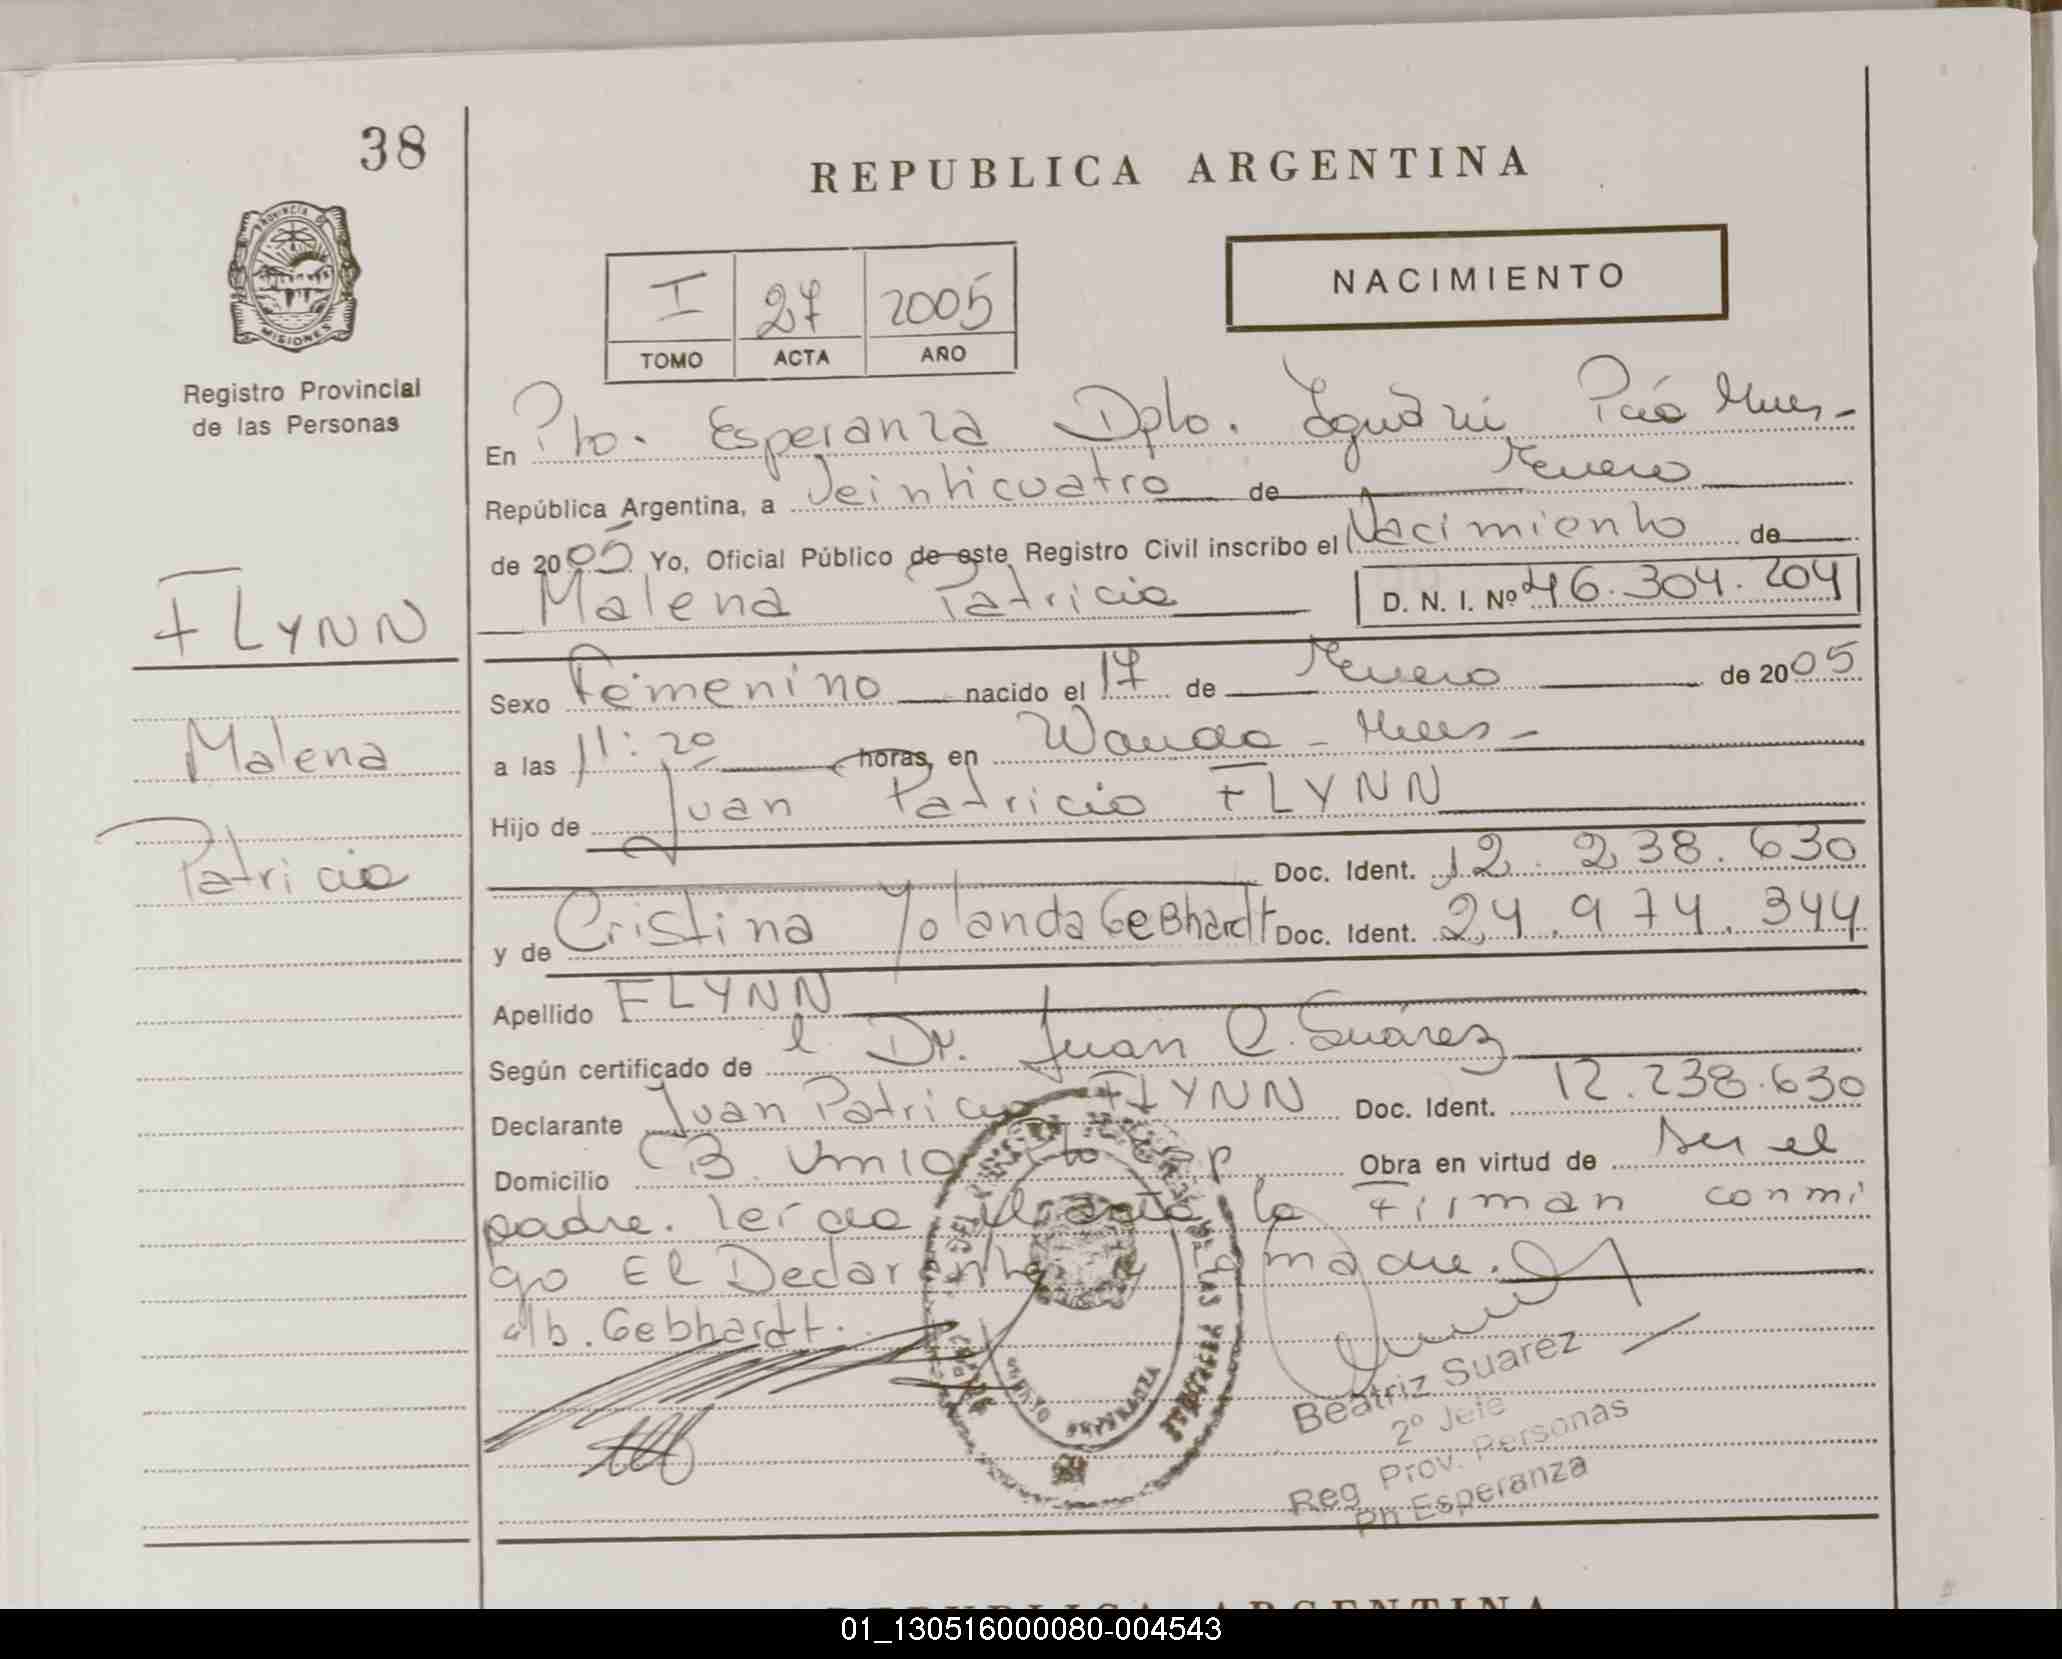 38
REPUBLICA ARGENTINA
PROVINCIA DE
MISIONES
Registro Provincial
de las Personas
NACIMIENTO
I 27 2005
TOMO ACTA AÑO
En Pto. Esperanza Dpto. Iguazú Pcia Mnes-
República Argentina, a Veinticuatro de Enero
de 2005 Yo, Oficial Público de este Registro Civil inscribo el Nacimiento de
Malena Patricia D. N. I. Nº 46.304.204
FLYNN
Malena
Patricia
Sexo Femenino nacido el 17 de Enero de 2005
a las 11:20 horas, en Wanda - Mnes-
Hijo de Juan Patricio FLYNN
Doc. Ident. 12.238.630
y de Cristina Yolanda GeBhardt Doc. Ident. 24.974.344
Apellido FLYNN
Según certificado de l Dr. Juan C. Suárez
Declarante Juan Patricio FLYNN Doc. Ident. 12.238.630
Domicilio Obra en virtud de ser el
padre. leida el acta la Firman conmi
go El Declarante y la madre.
Gebhardt.
Beatriz Suarez
2º Jefe
Reg Prov. Personas
Pto Esperanza
REPUBLICA ARGENTINA
01_130516000080-004543